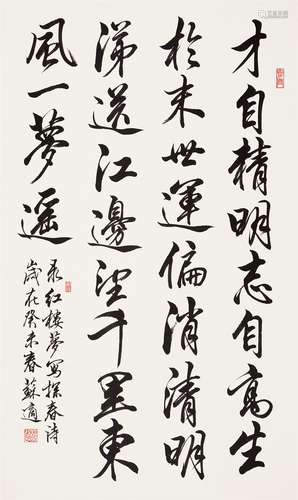 才自精明志自高生
於末世運偏消清明
涕送江邊望千里東
風一夢遥
录红楼夢寫探春诗
歲在癸未春蘇適